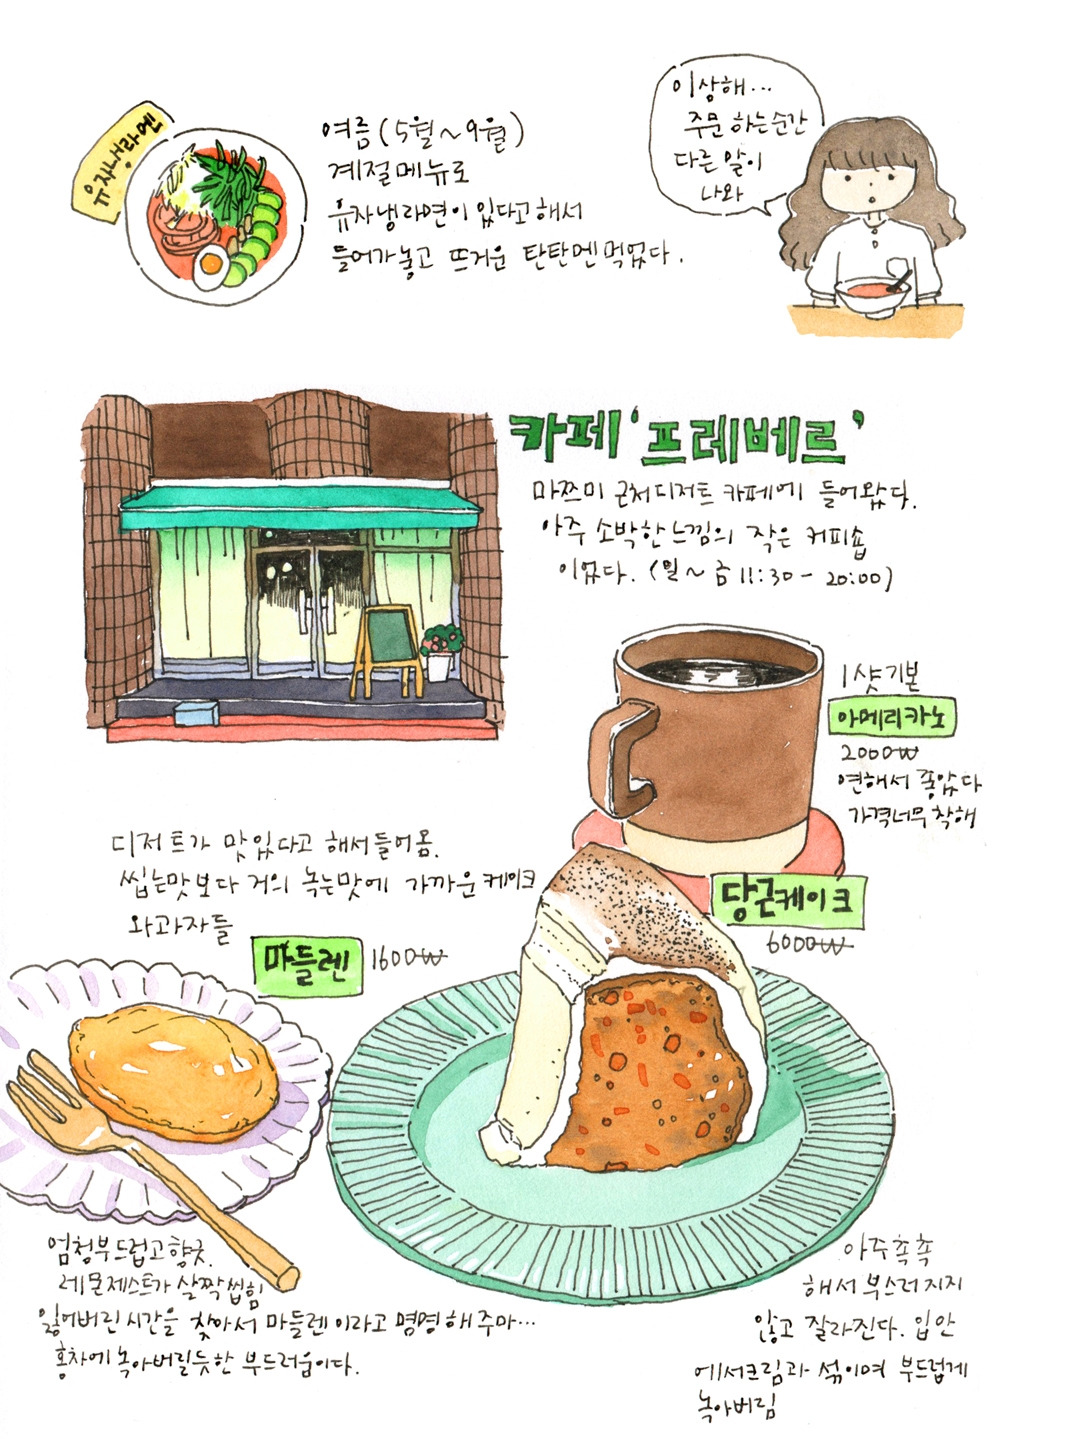 유자냉라멘
여름(5월~9월)
계절메뉴로
유자냉라면이 있다고해서
들어가놓고 뜨거운 탄탄멘먹었다.
이상해...
주문 하는순간
다른 말이
나와
카페 '프레베르'
마쯔미 근처디저트 카페에 들어왔다.
아주 소박한느낌의 작은 커피숍
이었다. (월~금 11:30-20:00)
1샷기본
아메리카노
2000₩
연해서 좋았다
가격너무착해
디저트가 맛있다고 해서들어옴.
씹는맛보다 거의 녹는맛에 가까운케이크
와과자들
당근케이크
6000₩
마들렌 1600₩
엄청부드럽고향긋.
레몬제스트가 살짝씹힘
잃어버린시간을 찾아서 마들렌이라고 명명해주마...
홍차에녹아버릴듯한 부드러움이다.
아주촉촉
해서부스러지지
않고 잘라진다. 입안
에서크림과 섞이며 부드럽게
녹아버림